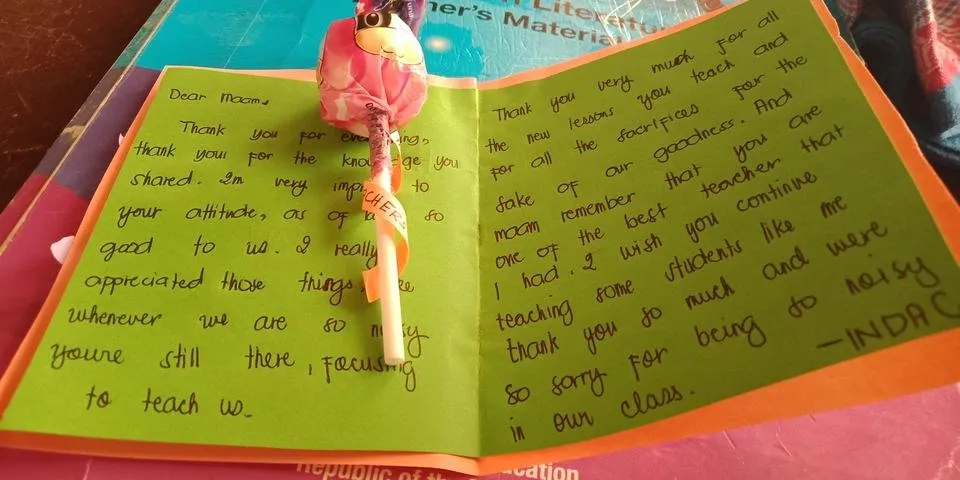 Material
Dear Maam,
Thank you for
thank you for the you
shared. Im very to
your attitude, as of so
good to us. I really
appreciated those things,
whenever we are so noisy
youre still there, focusing
to teach us.
Thank you very much for all
the new lessons you teach and
for all the sacrifices for the
sake of our goodness. And
maam remember that you are
one of the best teacher that
I had. I wish you continue
teaching some students like me
thank you so much and were
so sorry for being so noisy
in our class.
—INDAC
Republic of the